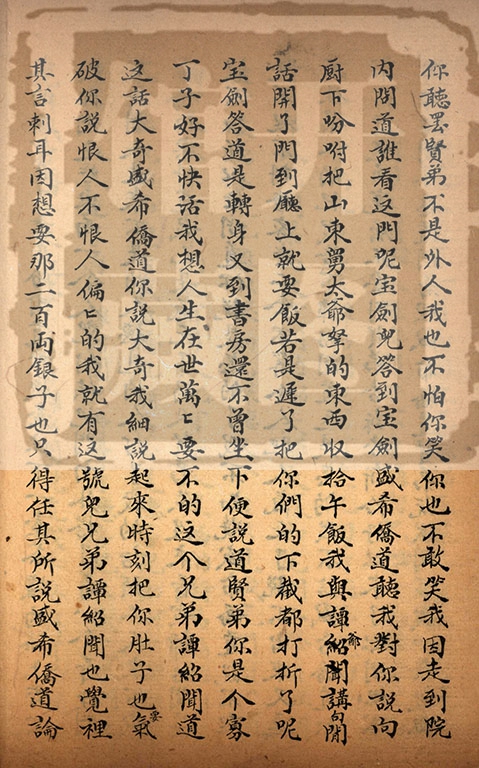 你聽罷賢弟不是外人我也不怕你笑你也不敢笑我因走到院
内問道誰看这門呢宝劍兒答到宝劍盛希僑道聽我對你說向
厨下吩咐把山東舅太爺拏的東西收拾午飯我與譚紹聞爺講句閒
話開了門到廳上就要飯若是遲了把你們的下截都打折了呢
宝劍答道是轉身又到書房還不曽坐下便說道賢弟你是个寡
丁子好不快活我想人生在世萬〻要不的这个兄弟譚紹聞道
这話大奇盛希僑道你說大奇我細說起來時刻把你肚子也要氣
破你說恨人不恨人偏〻的我就有这號兒兄弟譚紹聞也覺裡
其言刺耳因想要那二百両銀子也只得任其所說盛希僑道論